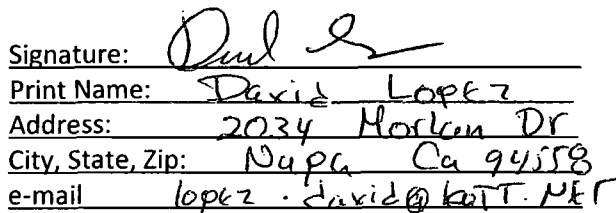 Signature:
Print Name: David Lopez
Address: 2034 Morlan Dr
City, State, Zip: Napa Ca 94558
e-mail lopez.david@